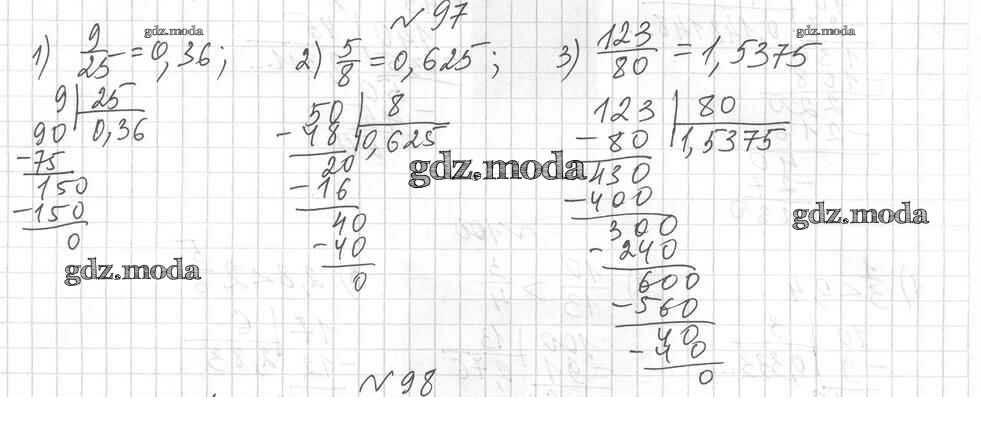 № 97
1) 9/25 = 0,36; 2) 5/8 = 0,625; 3) 123/80 = 1,5375
gdz.moda
gdz.moda
9 | 25
90 0,36
-75
150
-150
0
gdz.moda
50 | 8
-48 0,625
20
-16
40
-40
0
gdz.moda
123 | 80
-80 1,5375
430
-400
300
-240
600
-560
40
-40
0
gdz.moda
№ 98